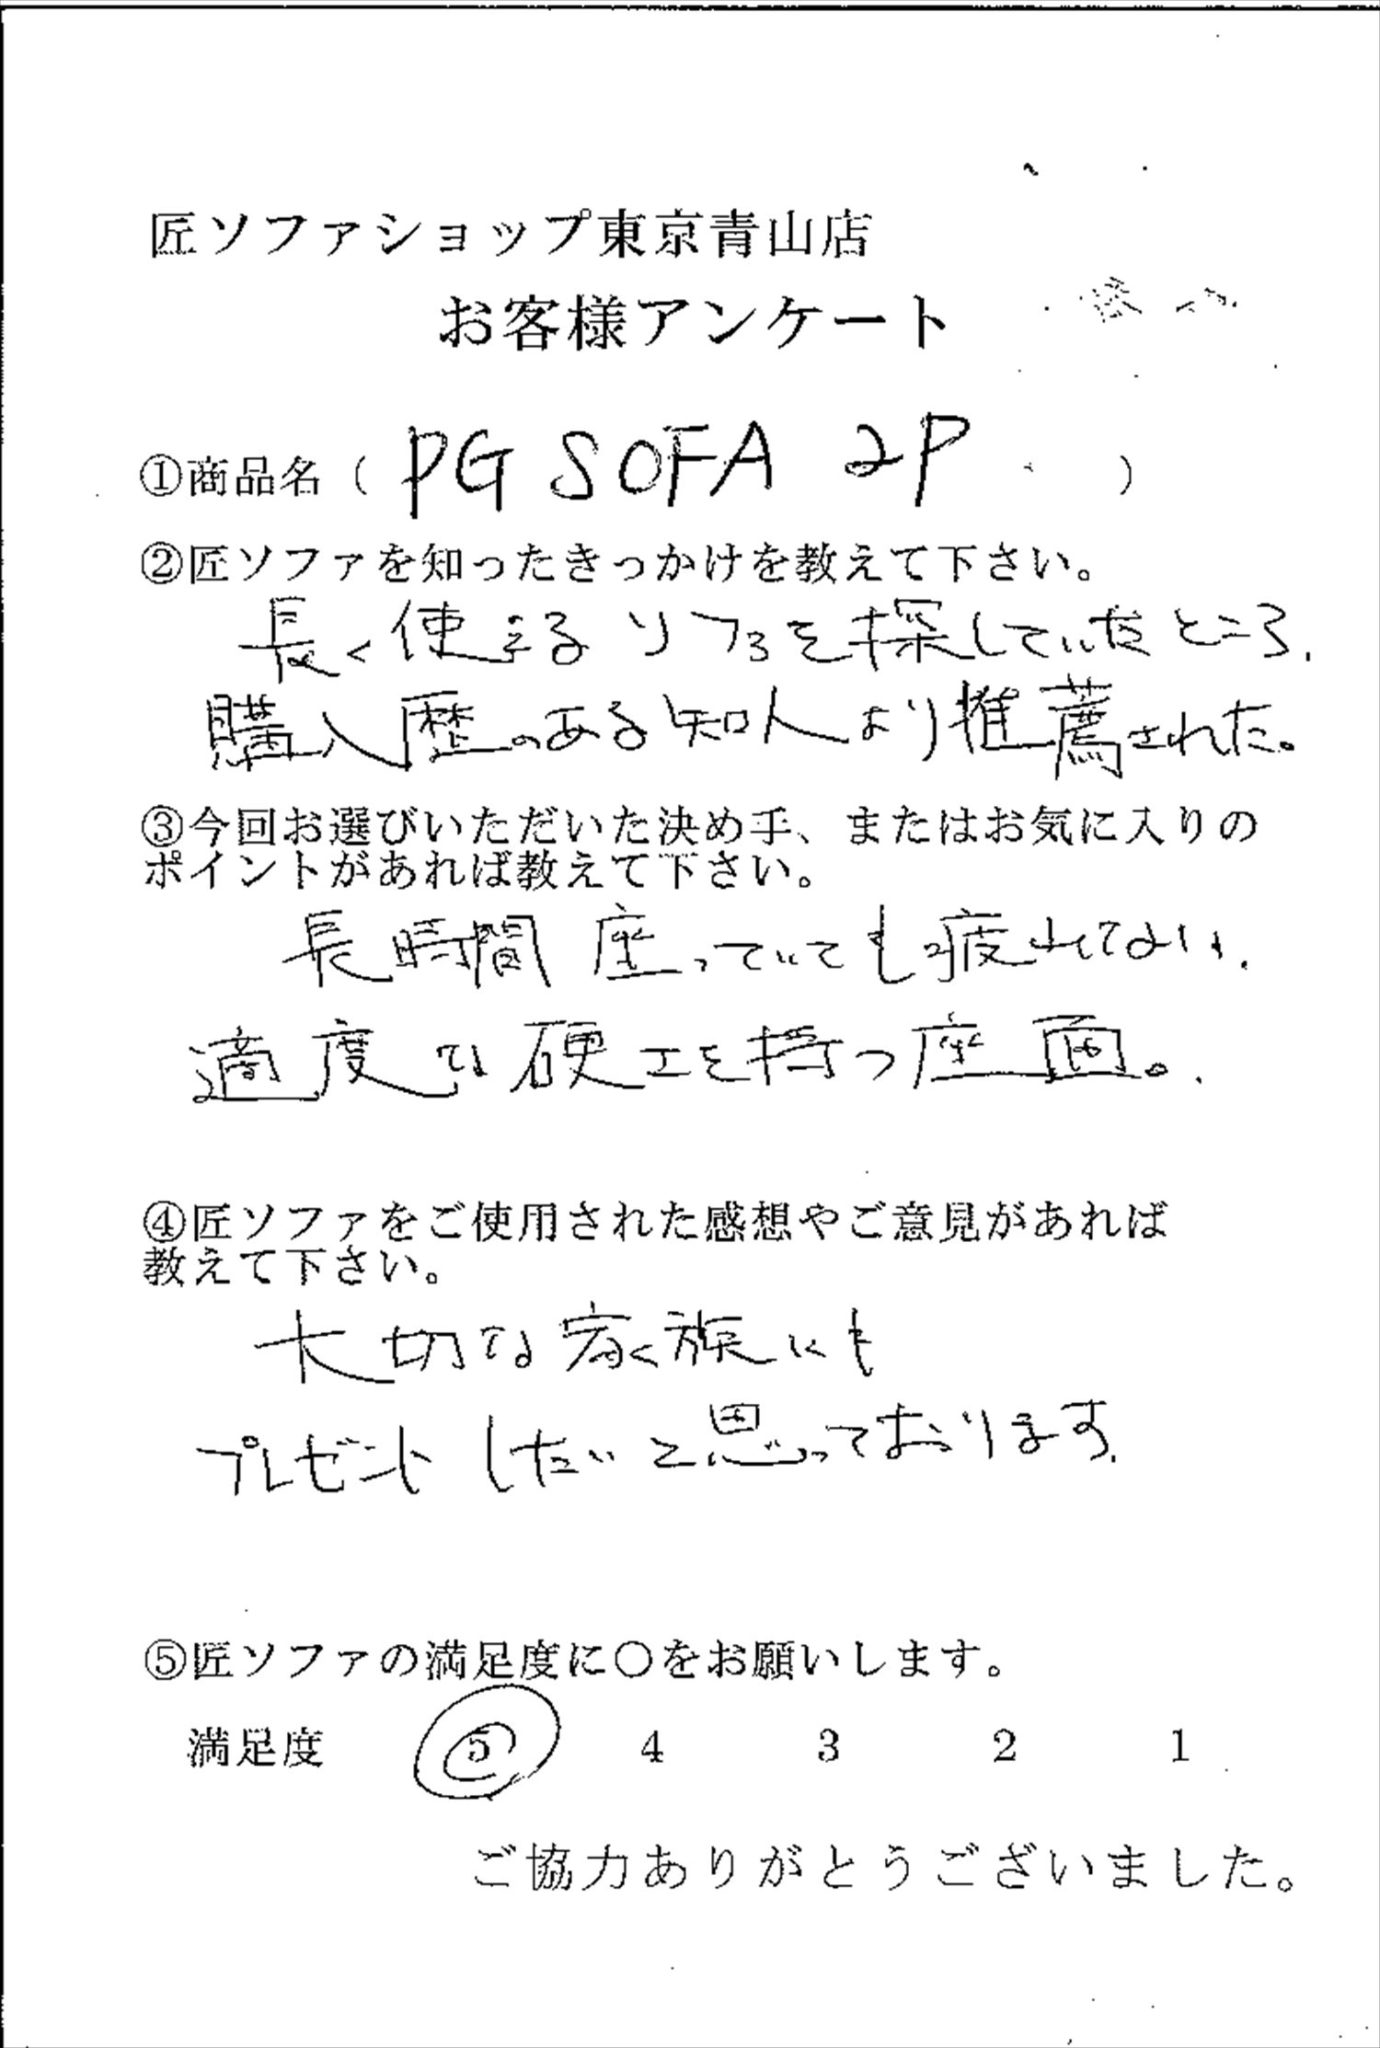 匠ソファショップ東京青山店
お客様アンケート
①商品名（ PG SOFA 2P ）
②匠ソファを知ったきっかけを教えて下さい。
長く使えるソファを探していたところ、
購入歴のある知人より推薦された。
③今回お選びいただいた決め手、またはお気に入りの
ポイントがあれば教えて下さい。
長時間座っていても疲れてない、
適度な硬エを持つ座面。
④匠ソファをご使用された感想やご意見があれば
教えて下さい。
大切な家族にも
プレゼントしたいと思っております。
⑤匠ソファの満足度に〇をお願いします。
満足度 5 4 3 2 1
ご協力ありがとうございました。